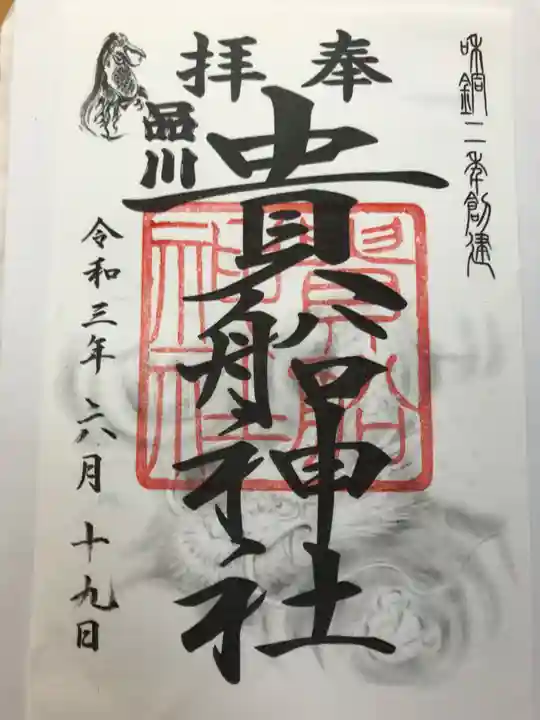 和銅二年創建
奉拝
品川
貴船神社
令和三年 六月 十九日